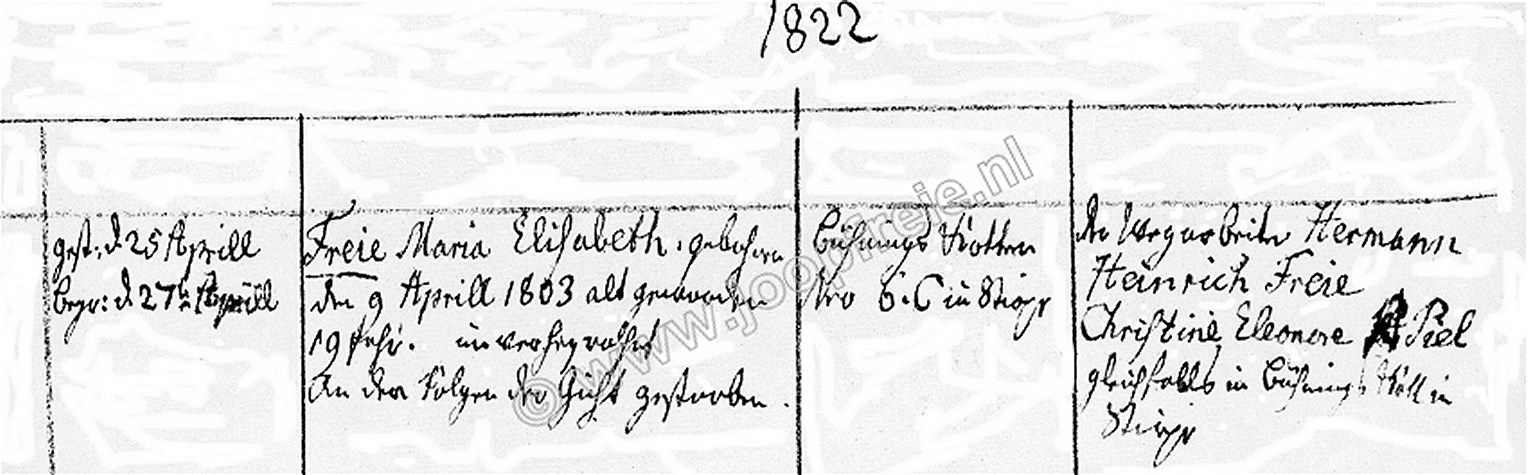 1822
gest: d. 25 Aprill
begr: d. 27 Aprill
Freie Maria Elisabeth. gebohren
den 9 Aprill 1803 alt geworden
19 Jahr. unverheyrathet
An den Folgen der Gicht gestorben.
Bühnings Kotten
Nro 6. C in Stirpe
der Wegarbeiter Hermann
Heinrich Freie
Christine Eleonore Piel
gleichfalls in Bühnings in
Stirpe
© www.joopfreje.nl